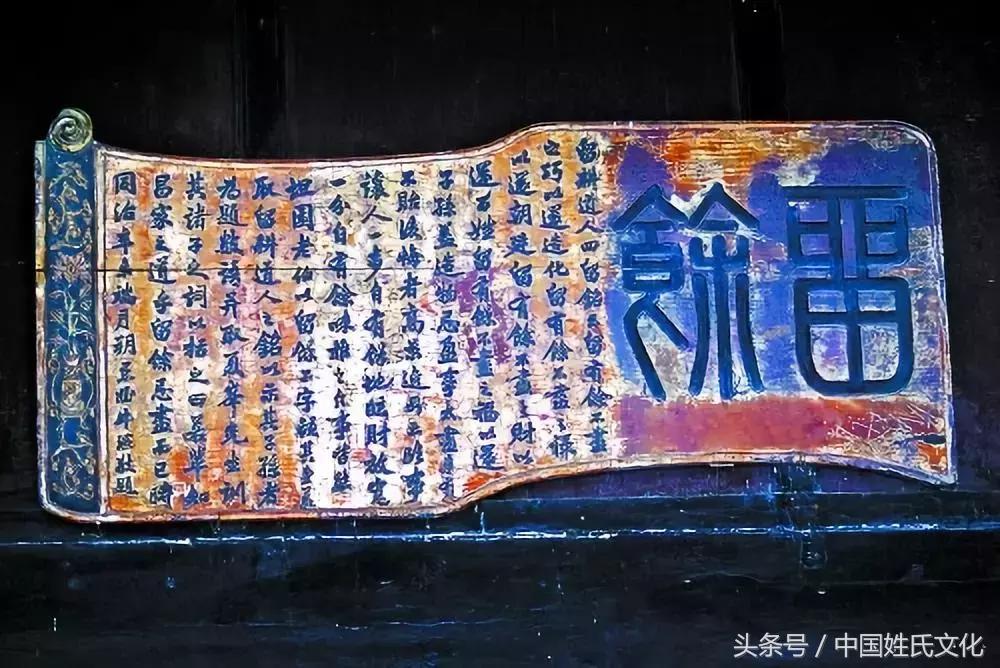 留餘
留耕道人四留銘云留有餘不盡
之巧以還造化留有餘不盡之祿
以還朝廷留有餘不盡之財以
還百姓留有餘不盡之福以還
子孫蓋造物忌盈事太盡未有
不貽後悔者高景逸所云臨事
讓人一步自有餘地臨財放寬
一分自有餘味推之凡事皆然
坦園老伯以留餘二字顏其堂蓋
取留耕道人之銘以示其子孫者
為題數語并取夏峯先生訓
其諸子之詞以括之曰若輩知
昌家之道乎留餘忌盡而已時
同治辛未端月朔愚姪牛瑄敬題
头条号 / 中国姓氏文化